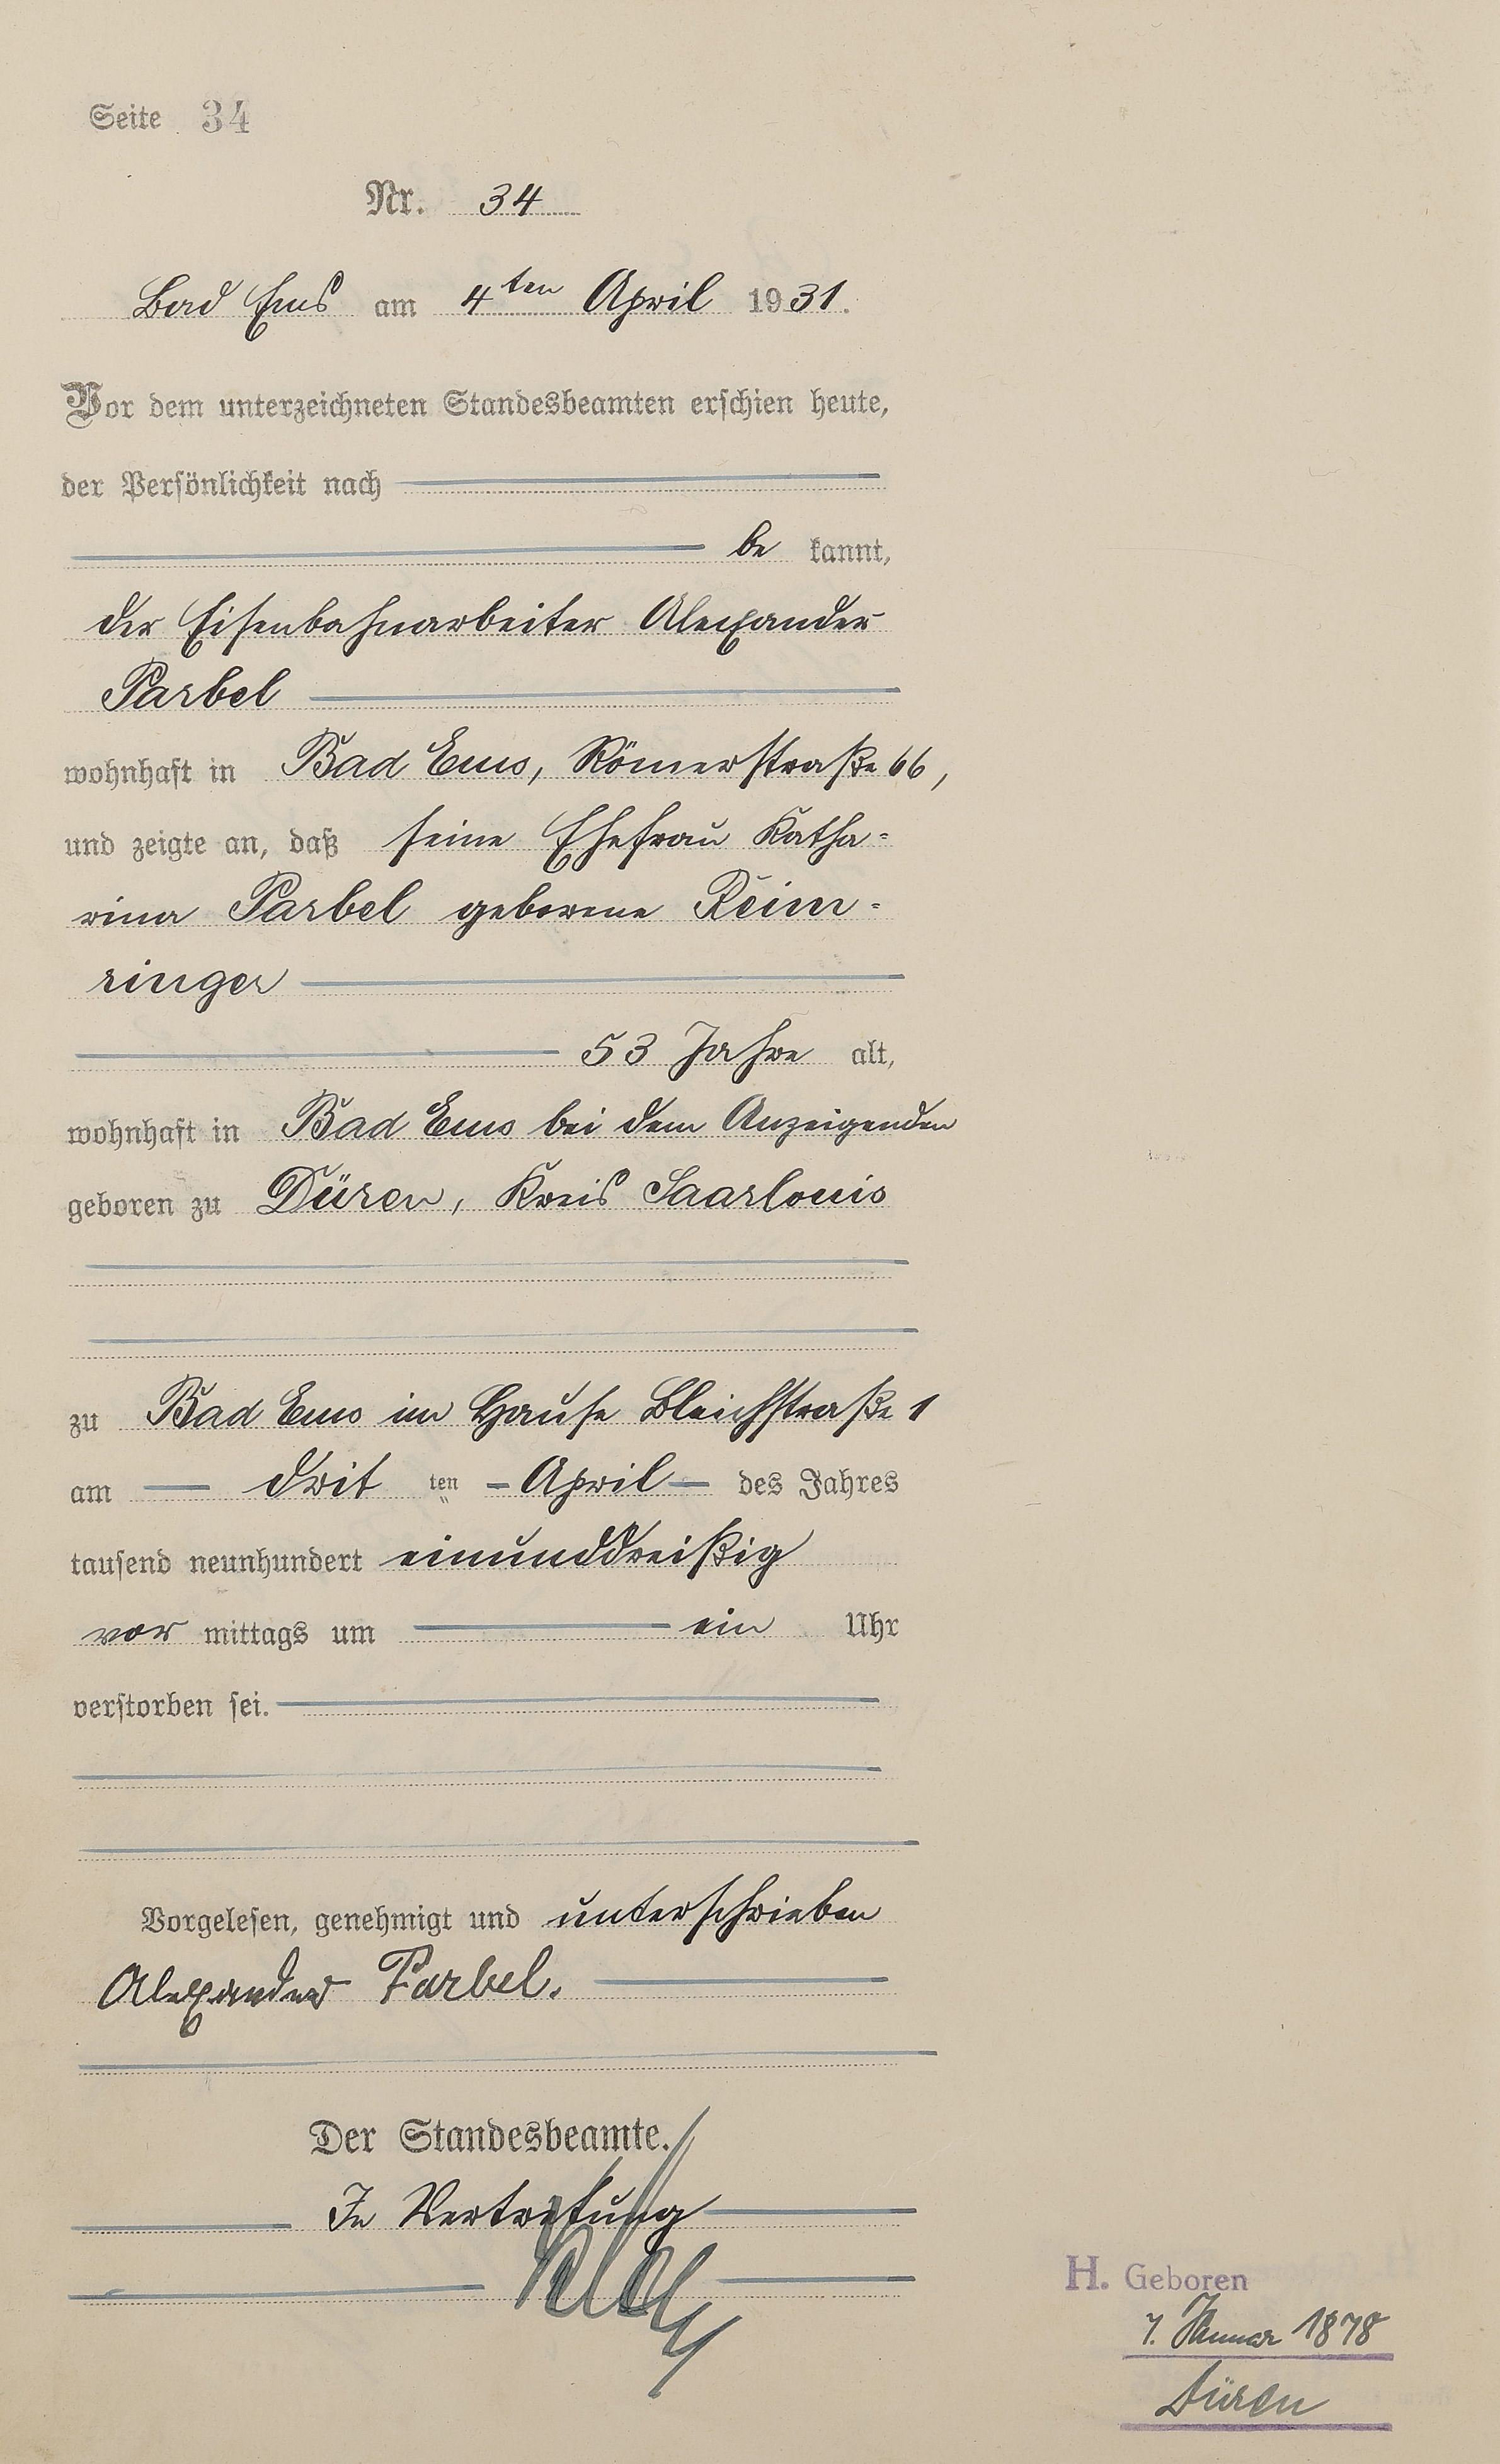 Seite 34
Nr. 34
Bad Ems am 4ten April 1931.
Vor dem unterzeichneten Standesbeamten erschien heute,
der Persönlichkeit nach
be kannt,
der Eisenbahnarbeiter Alexander
Parbel
wohnhaft in Bad Ems, Römerstraße 66,
und zeigte an, daß seine Ehefrau Katha=
rina Parbel geborene Reim=
ringer
53 Jahre alt,
wohnhaft in Bad Ems bei dem Anzeigenden
geboren zu Düren, Kreis Saarlouis
zu Bad Ems im Hause Bleichstraße 1
am drit ten April des Jahres
tausend neunhundert einunddreißig
vor mittags um ein Uhr
verstorben sei.
Vorgelesen, genehmigt und unterschrieben
Alexander Parbel.
Der Standesbeamte.
In Vertretung
H. Geboren
7. Januar 1878
Düren